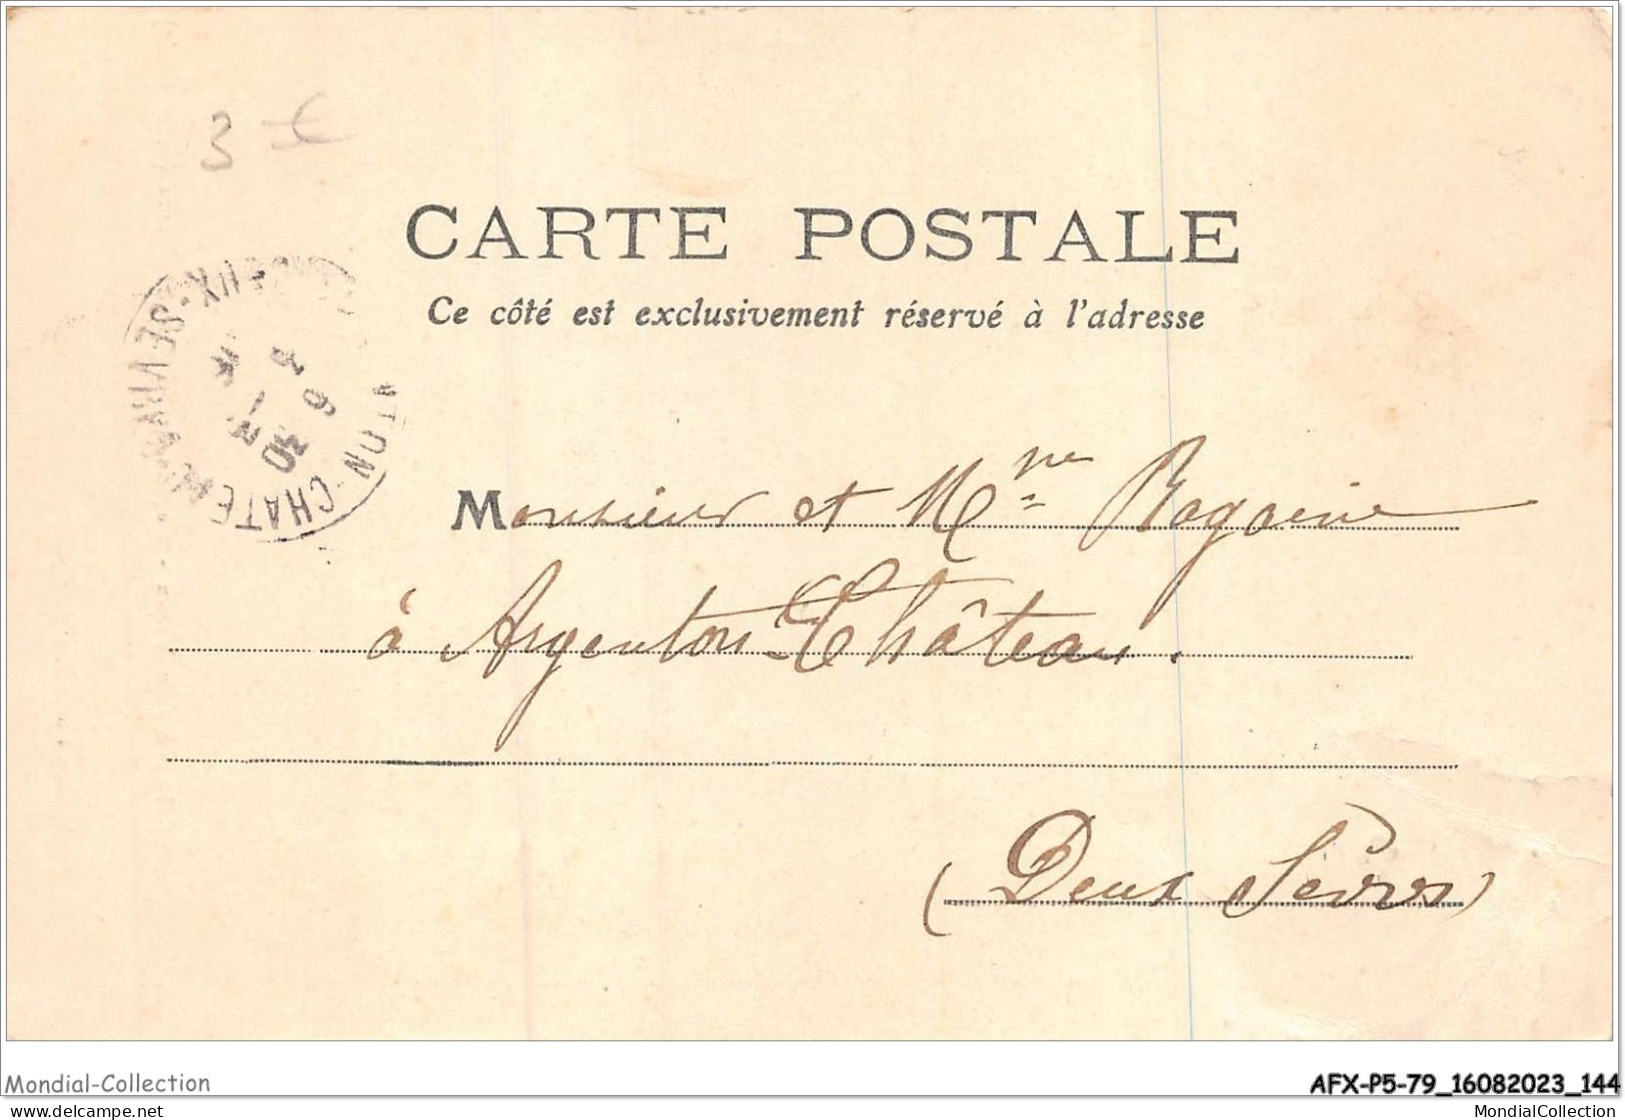 3 €
CARTE POSTALE
Ce côté est exclusivement réservé à l'adresse
TON-CHATEAU
SEVRES
03
Monsieur et Mme
à Argenton-Château.
(Deux Sèvres)
Mondial-Collection
AFX-P5-79_16082023_144
delcampe.net
MondialCollection